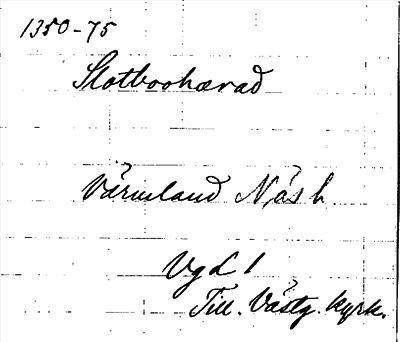 1350-75
Slotboohærad
Värmland Näs h.
Vg L 1
Till. Västg. kyrk.